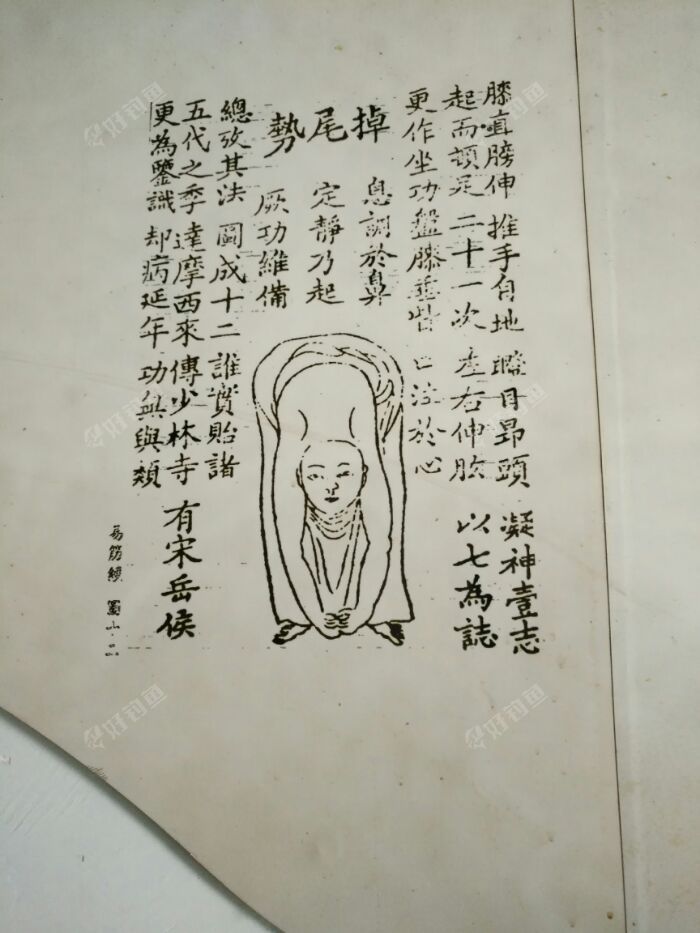 掉尾勢
膝直膀伸 推手自地 瞪目昂頭 凝神壹志
起而頓足 二十一次 左右伸肱 以七為誌
更作坐功 盤膝垂眥 口注於心
息調於鼻
定靜乃起
厥功維備
總攷其法 圖成十二 誰實貽諸
五代之季 達摩西來 傳少林寺 有宋岳侯
更為鑒識 却病延年 功無與類
易筋經
好钓鱼
好钓鱼
好钓鱼
好钓鱼
好钓鱼
好钓鱼